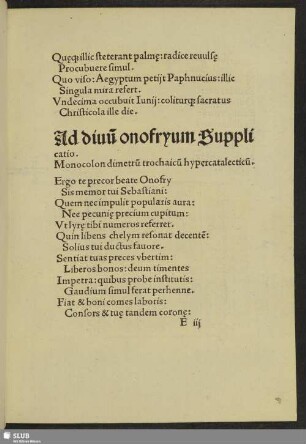 Quęq; illic steterant palmę: radice reuulsę
Procubuere simul.
Quo viso: Aegyptum petijt Paphnucius: illic
Singula mira refert.
Vndecima occubuit Iunij: coliturq; sacratus
Christicola ille die.
Ad diuū onofryum Suppli
catio.
Monocolon dimetrū trochaicū hypercatalecticū.
Ergo te precor beate Onofry
Sis memor tui Sebastiani:
Quem nec impulit popularis aura:
Nec pecunię precium cupitum:
Vt lyrę tibi numeros referret.
Quin libens chelym resonat decentē:
Solius tui ductus fauore.
Sentiat tuas preces vbertim:
Liberos bonos: deum timentes
Impetra: quibus probe institutis:
Gaudium simul ferat perhenne.
Fiat & boni comes laboris:
Consors & tuę tandem coronę:
E iij
SLUB